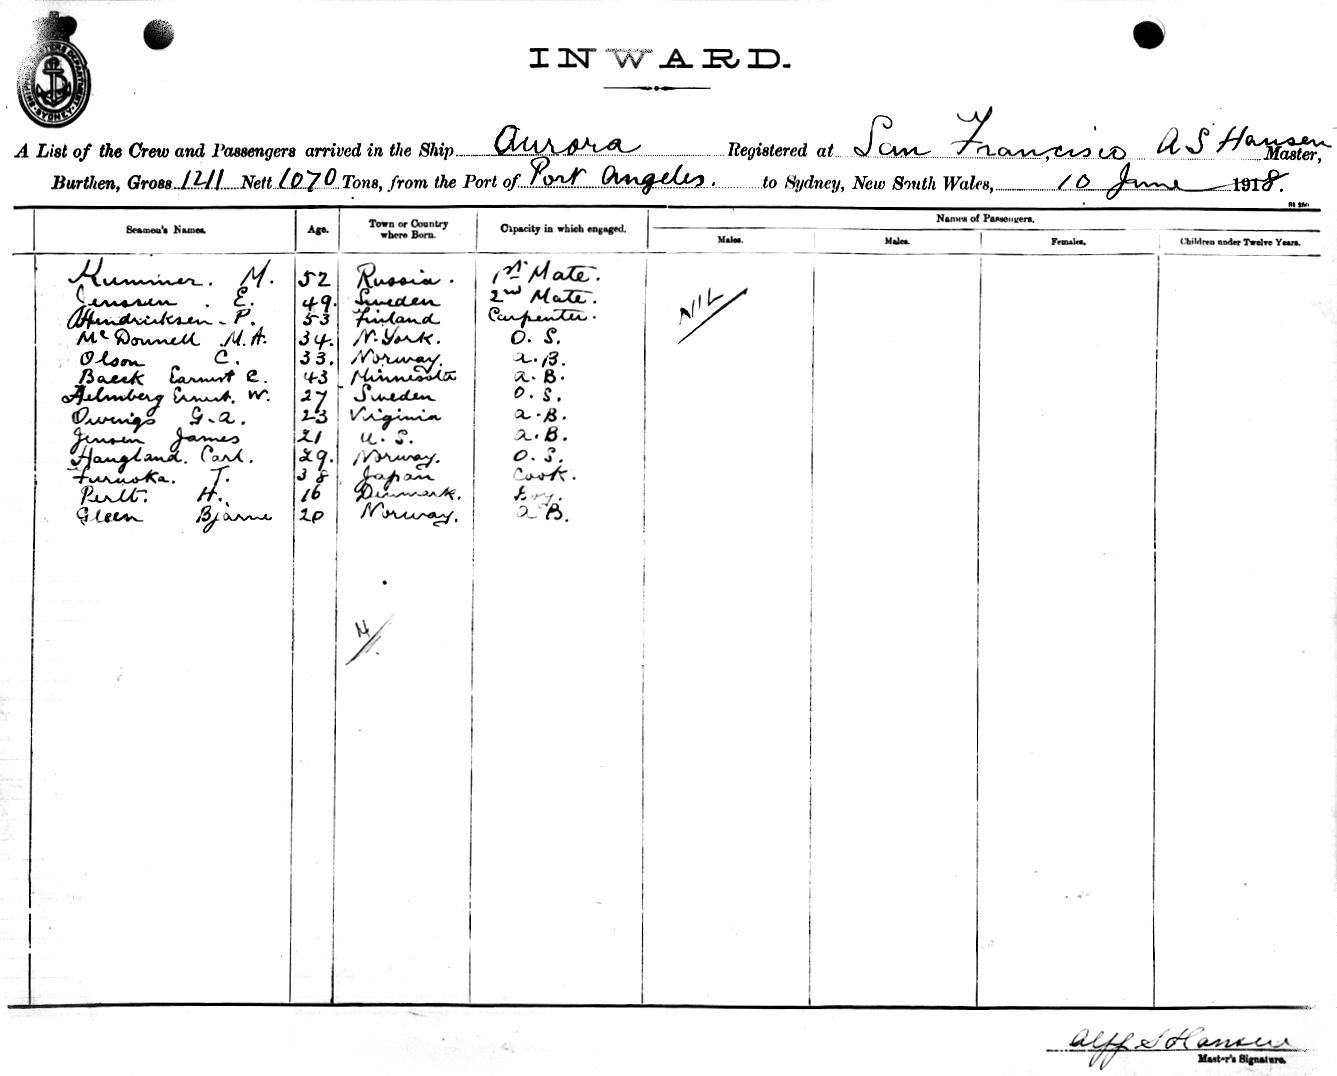 SHIPPING MASTERS DEPARTMENT SYDNEY
INWARD.
A List of the Crew and Passengers arrived in the Ship Aurora Registered at San Francisco A S Hansen Master,
Burthen, Gross 1211 Nett 1070 Tons, from the Port of Port Angeles. to Sydney, New South Wales, 10 June 1918.
Seamen's Names. Age. Town or Country where Born. Capacity in which engaged. Names of Passengers.
Males. Males. Females. Children under Twelve Years.
Kummer. M. 52 Russia. 1st Mate.
Jenssen. E. 49. Sweden 2nd Mate.
Hendricksen. P. 53 Finland Carpenter.
McDonnell M.A. 34. N. York. O. S.
Olson C. 33. Norway. A.B.
Baeck Earnest C. 43 Minnesota A.B.
Helmberg Ernest. W. 27 Sweden O.S.
Owings G.A. 23 Virginia A.B.
Jensen James 21 U.S. A.B.
Haugland. Carl. 29. Norway. O.S.
Furuoka. T. 38 Japan Cook.
Perlt. H. 16 Denmark. Boy.
Gleen Bjarne 20 Norway. A B.
NIL
Alff S Hansen
Master's Signature.